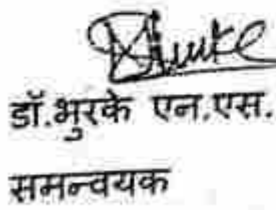 डॉ.भुरके एन.एस.
समन्वयक